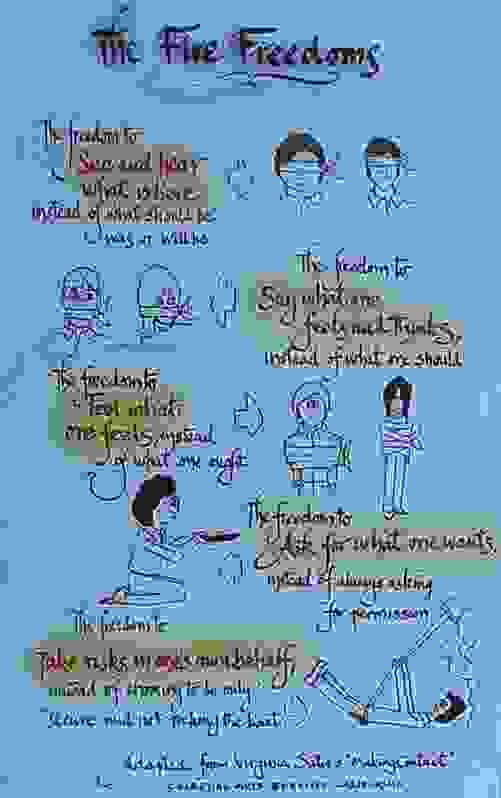 The Five Freedoms
The freedom to
See and hear
what is here
instead of what should be
was or will be
The freedom to
Say what one
feels and thinks,
instead of what one should
The freedom to
Feel what
one feels, instead
of what one ought
The freedom to
Ask for what one wants,
instead of always asking
for permission
The freedom to
Take risks in one's own behalf,
instead of choosing to be only
secure and not rocking the boat
Adapted from Virginia Satir's "Making Contact"